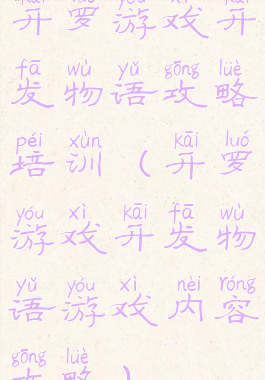 kāi luó yóu xì kāi
开罗游戏开
fā wù yǔ gōng lüè
发物语攻略
péi xùn kāi luó
培训（开罗
yóu xì kāi fā wù
游戏开发物
yǔ yóu xì nèi róng
语游戏内容
gōng lüè
攻略）